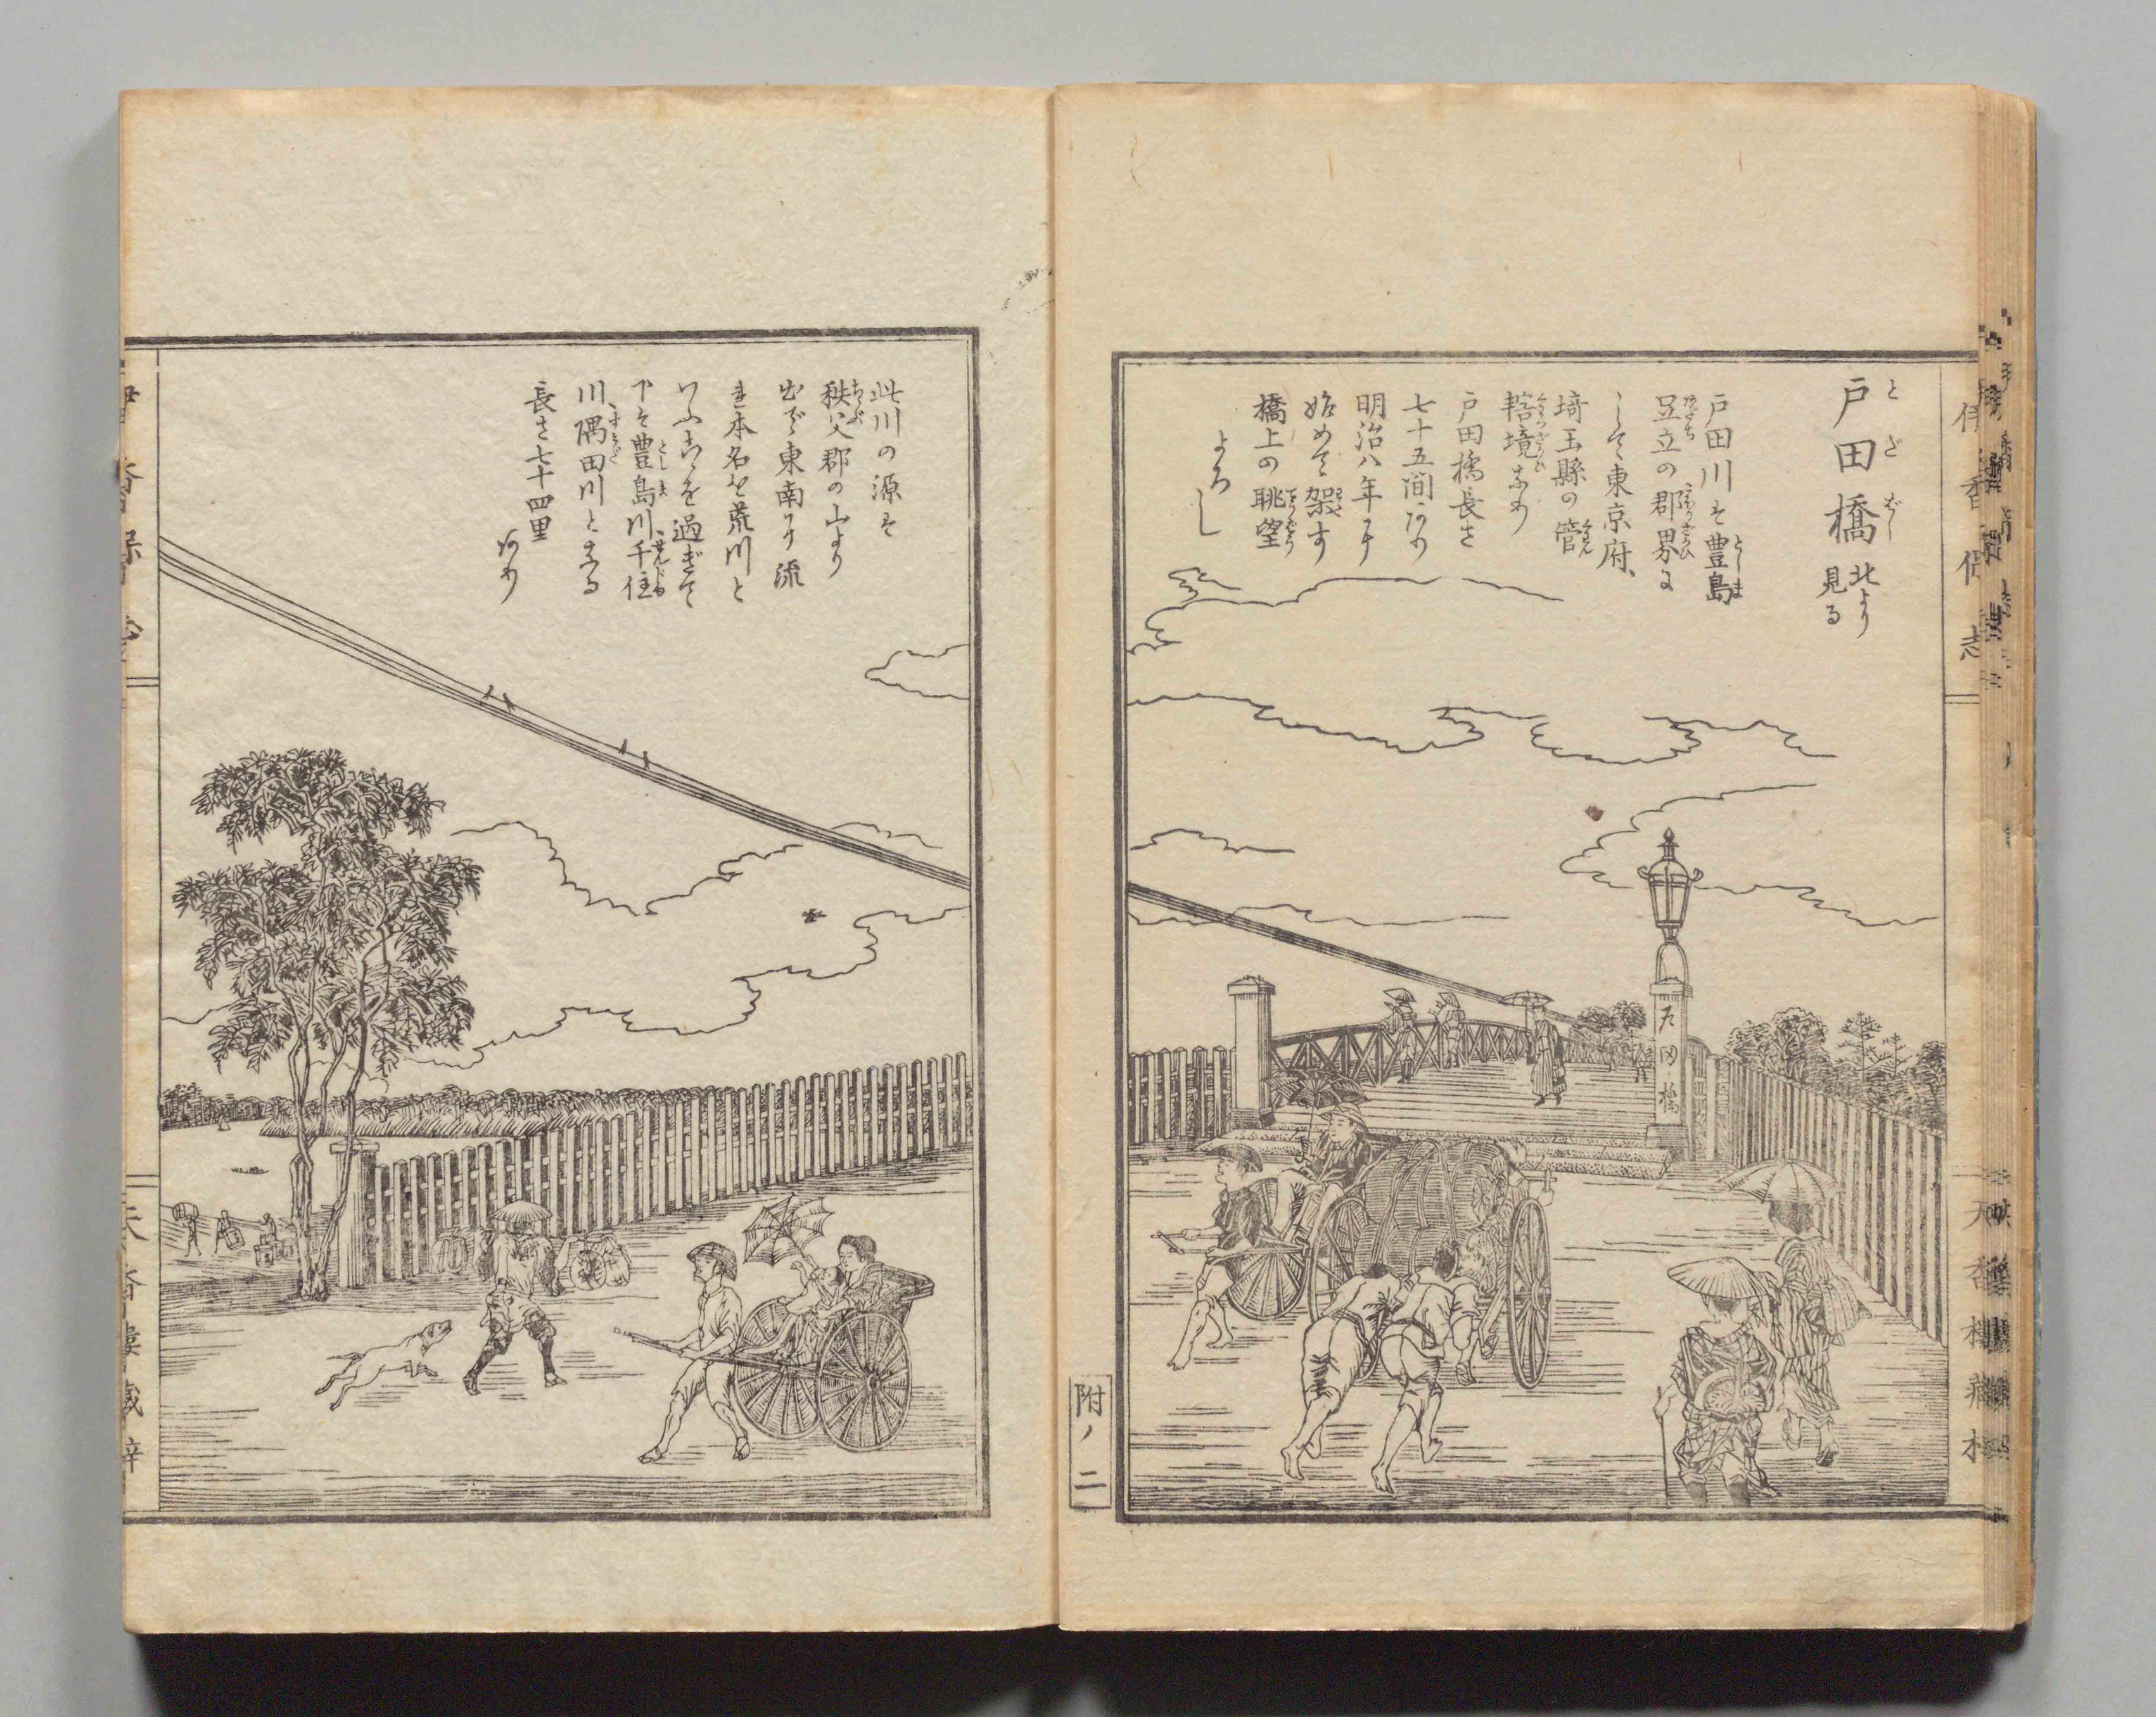 戸田橋 北より見る
戸田川は豊島
足立の郡界に
して東京府、
埼玉縣の管
轄境なり
戸田橋長さ
七十五間あり
明治八年に
始めて架す
橋上の眺望
よろし
戸田橋
附ノ二
此川の源は
秩父郡の山より
出で東南に流
る本名を荒川と
いふこゝを過ぎて
下を豊島川千住
川隅田川となる
長さ七十四里
あり
伊香保志